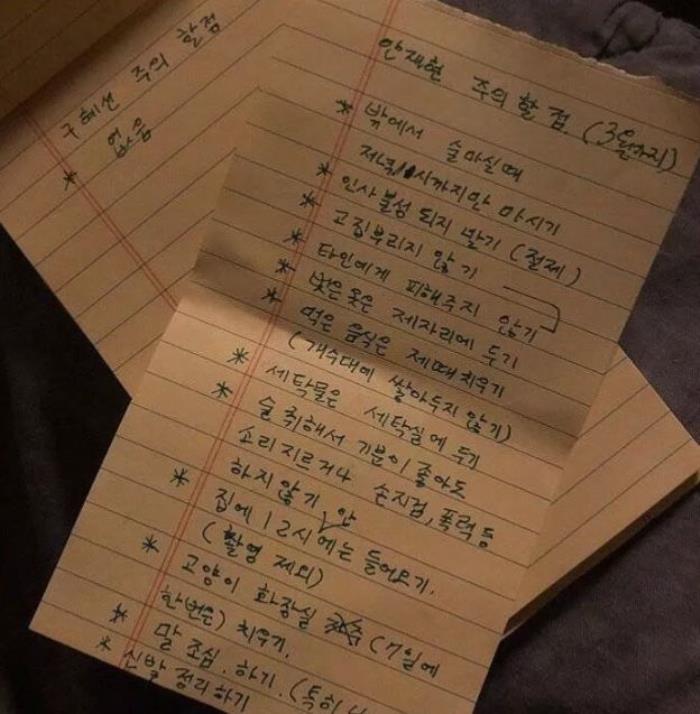 구혜선 주의 할점
* 없음
안재현 주의할 점 (3월까지)
* 밖에서 술마실때
저녁11시까지만 마시기
* 인사불성 되지 말기 (절제)
* 고집부리지 않기
* 타인에게 피해주지 않기
* 벗은 옷은 제자리에 두기
* 먹은 음식은 제때 치우기
(개수대에 쌓아두지 않기)
* 세탁물은 세탁실에 두기
* 술 취해서 기분이 좋아도
소리지르거나 손지검, 폭력 등
하지않기
* 집에 12시 안에는 들어오기.
(촬영 제외)
* 고양이 화장실 (7일에
한번은) 치우기.
* 말 조심. 하기. (특히
* 신발 정리하기